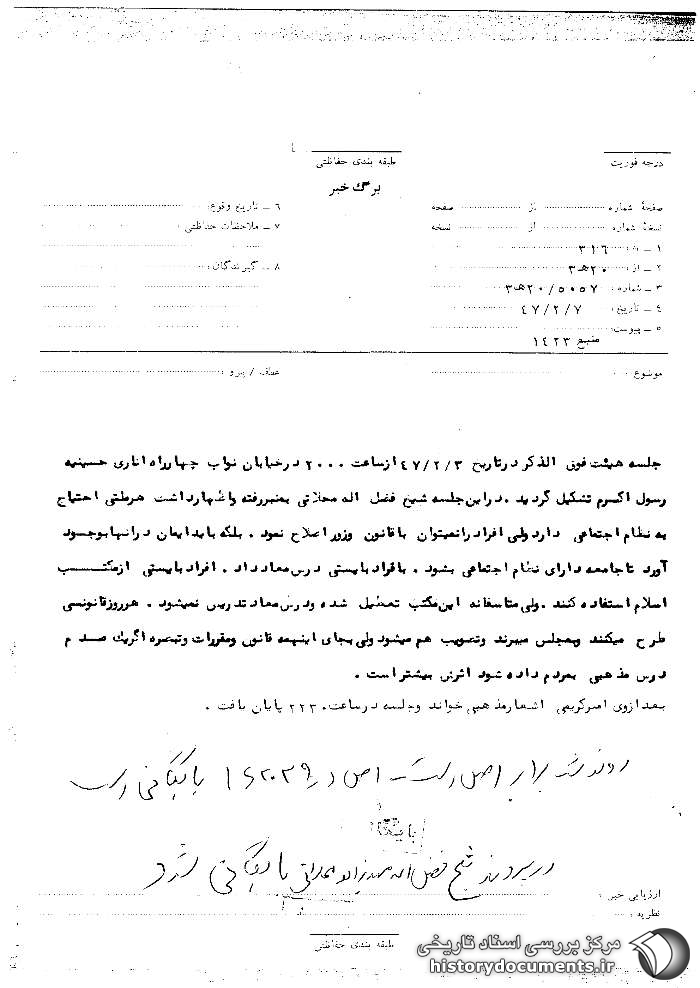 درجه فوریت
طبقه بندی حفاظتی
برگ خبر
صفحهٔ شماره از صفحه
نسخهٔ شماره از نسخه
۱ – به: ۳۱۶
۲ – از: ۲۰ﻫ۳
۳ – شماره: ۵۰۵۷/ ۲۰ﻫ۳
۴ – تاریخ: ۴۷/۲/۷
۵ – پیوست:
منبع ۱۴۲۳
۶ – تاریخ وقوع:
۷ – ملاحظات حفاظتی:
۸ – گیرندگان:
موضوع:
عطف / پیرو:
جلسه هیئت فوق الذکر در تاریخ ۴۷/۲/۳ از ساعت ۲۰۰۰ در خیابان نواب چهار راه اناری حسینیه
رسول اکرم تشکیل گردید . در این جلسه شیخ فضل اله محلاتی بمنبر رفته و اظهار داشت هر ملتی احتیاج
به نظام اجتماعی دارد ولی افراد را نمیتوان با قانون و زور اصلاح نمود . بلکه باید ایمان در آنها بوجود
آورد تا جامعه دارای نظام اجتماعی بشود . بافراد بایستی درس معاد داد . افراد بایستی از مکتب
اسلام استفاده کنند . ولی متاسفانه این مکتب تعطیل شده و درس معاد تدریس نمیشود . هر روز قانونی
طرح میکنند و بمجلس میبرند و تصویب هم میشود ولی بجای اینهمه قانون و مقررات و تبصره اگر یک صدم
درس مذهبی بمردم داده شود اثرش بیشتر است .
بعد از وی امیر کریمی اشعار مذهبی خواند و جلسه در ساعت ۲۲۳۰ پایان یافت .
برابر اصل است اصل در بایگانی است
بایگانی شود
ارزیابی خبر:
نظریه:
طبقه بندی حفاظتی
مرکز بررسی اسناد تاریخی
historydocuments.ir